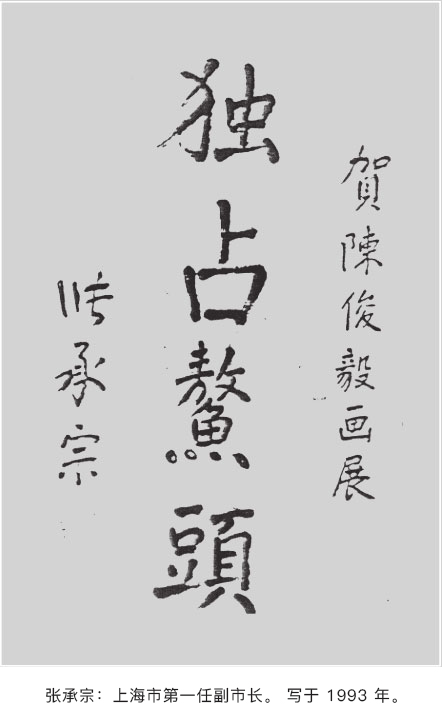 賀陳俊毅画展
独占鰲頭
张承宗
张承宗：上海市第一任副市长。 写于 1993 年。